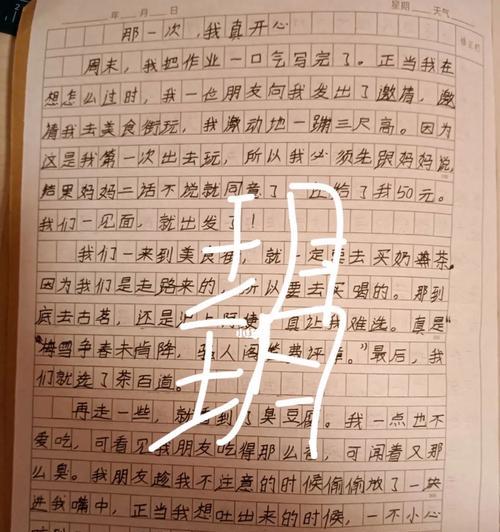 年 月 日 星期 天气
那一次,我真开心
周末,我把作业一口气写完了。正当我在
想怎么过时,我一位朋友向我发出了邀请,邀
请我去美食街玩,我激动地一蹦三尺高。因为
这是我第一次出去玩,所以我必须先跟妈妈说,
结果妈妈二话不说就同意了,还给了我50元。
我们一见面,就出发了!
我们一来到美食街,就一定要去买奶茶,
因为我们是走路来的,所以要去买喝的。那到
底去古茗,还是沪上阿姨,真让我难选。真是“
梅雪争春未肯降,骚人阁笔费评章。”最后,我
们就选了茶百道。
再走一些,就看到了臭豆腐。我一点也不
爱吃,可看见我朋友吃得那么香,可闻着又那
么臭。我朋友趁我不注意的时候偷偷放了一块
进我嘴中,正当我想吐出来的时候,一不小心
玥
玥